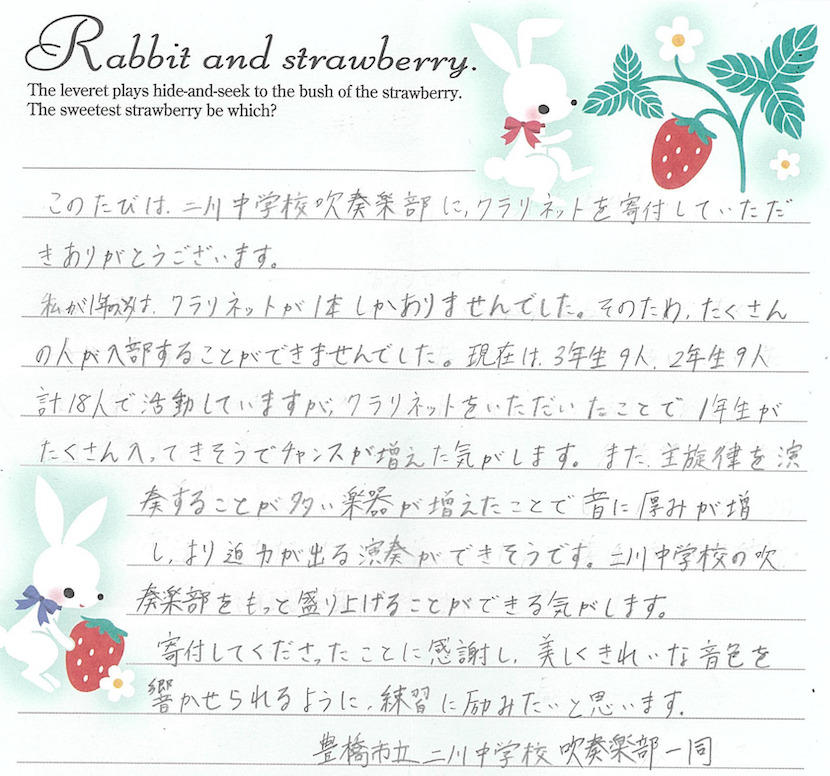 Rabbit and strawberry.
The leveret plays hide-and-seek to the bush of the strawberry.
The sweetest strawberry be which?
このたびは、二川中学校吹奏楽部に、クラリネットを寄付していただ
きありがとうございます。
私が1年の时は、クラリネットが1本しかありませんでした。そのため、たくさん
の人が入部することができませんでした。現在は、3年生9人、2年生9人
計18人で活動していますが、クラリネットをいただいたことで、1年生が
たくさん入ってきそうでチャンスが増えた気がします。また、主旋律を演
奏することが多い楽器が増えたことで音に厚みが増
し、より迫力が出る演奏ができそうです。二川中学校の吹
奏楽部をもっと盛り上げることができる気がします。
寄付してくださったことに感謝し、美しくきれいな音色を
響かせられるように、練習に励みたいと思います。
豊橋市立二川中学校吹奏楽部一同